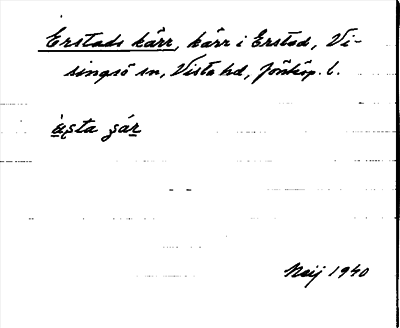 Erstads kärr, kärr i Erstad, Vi-
singsö sn, Vista hd, Jönköp. l.
Neij 1940